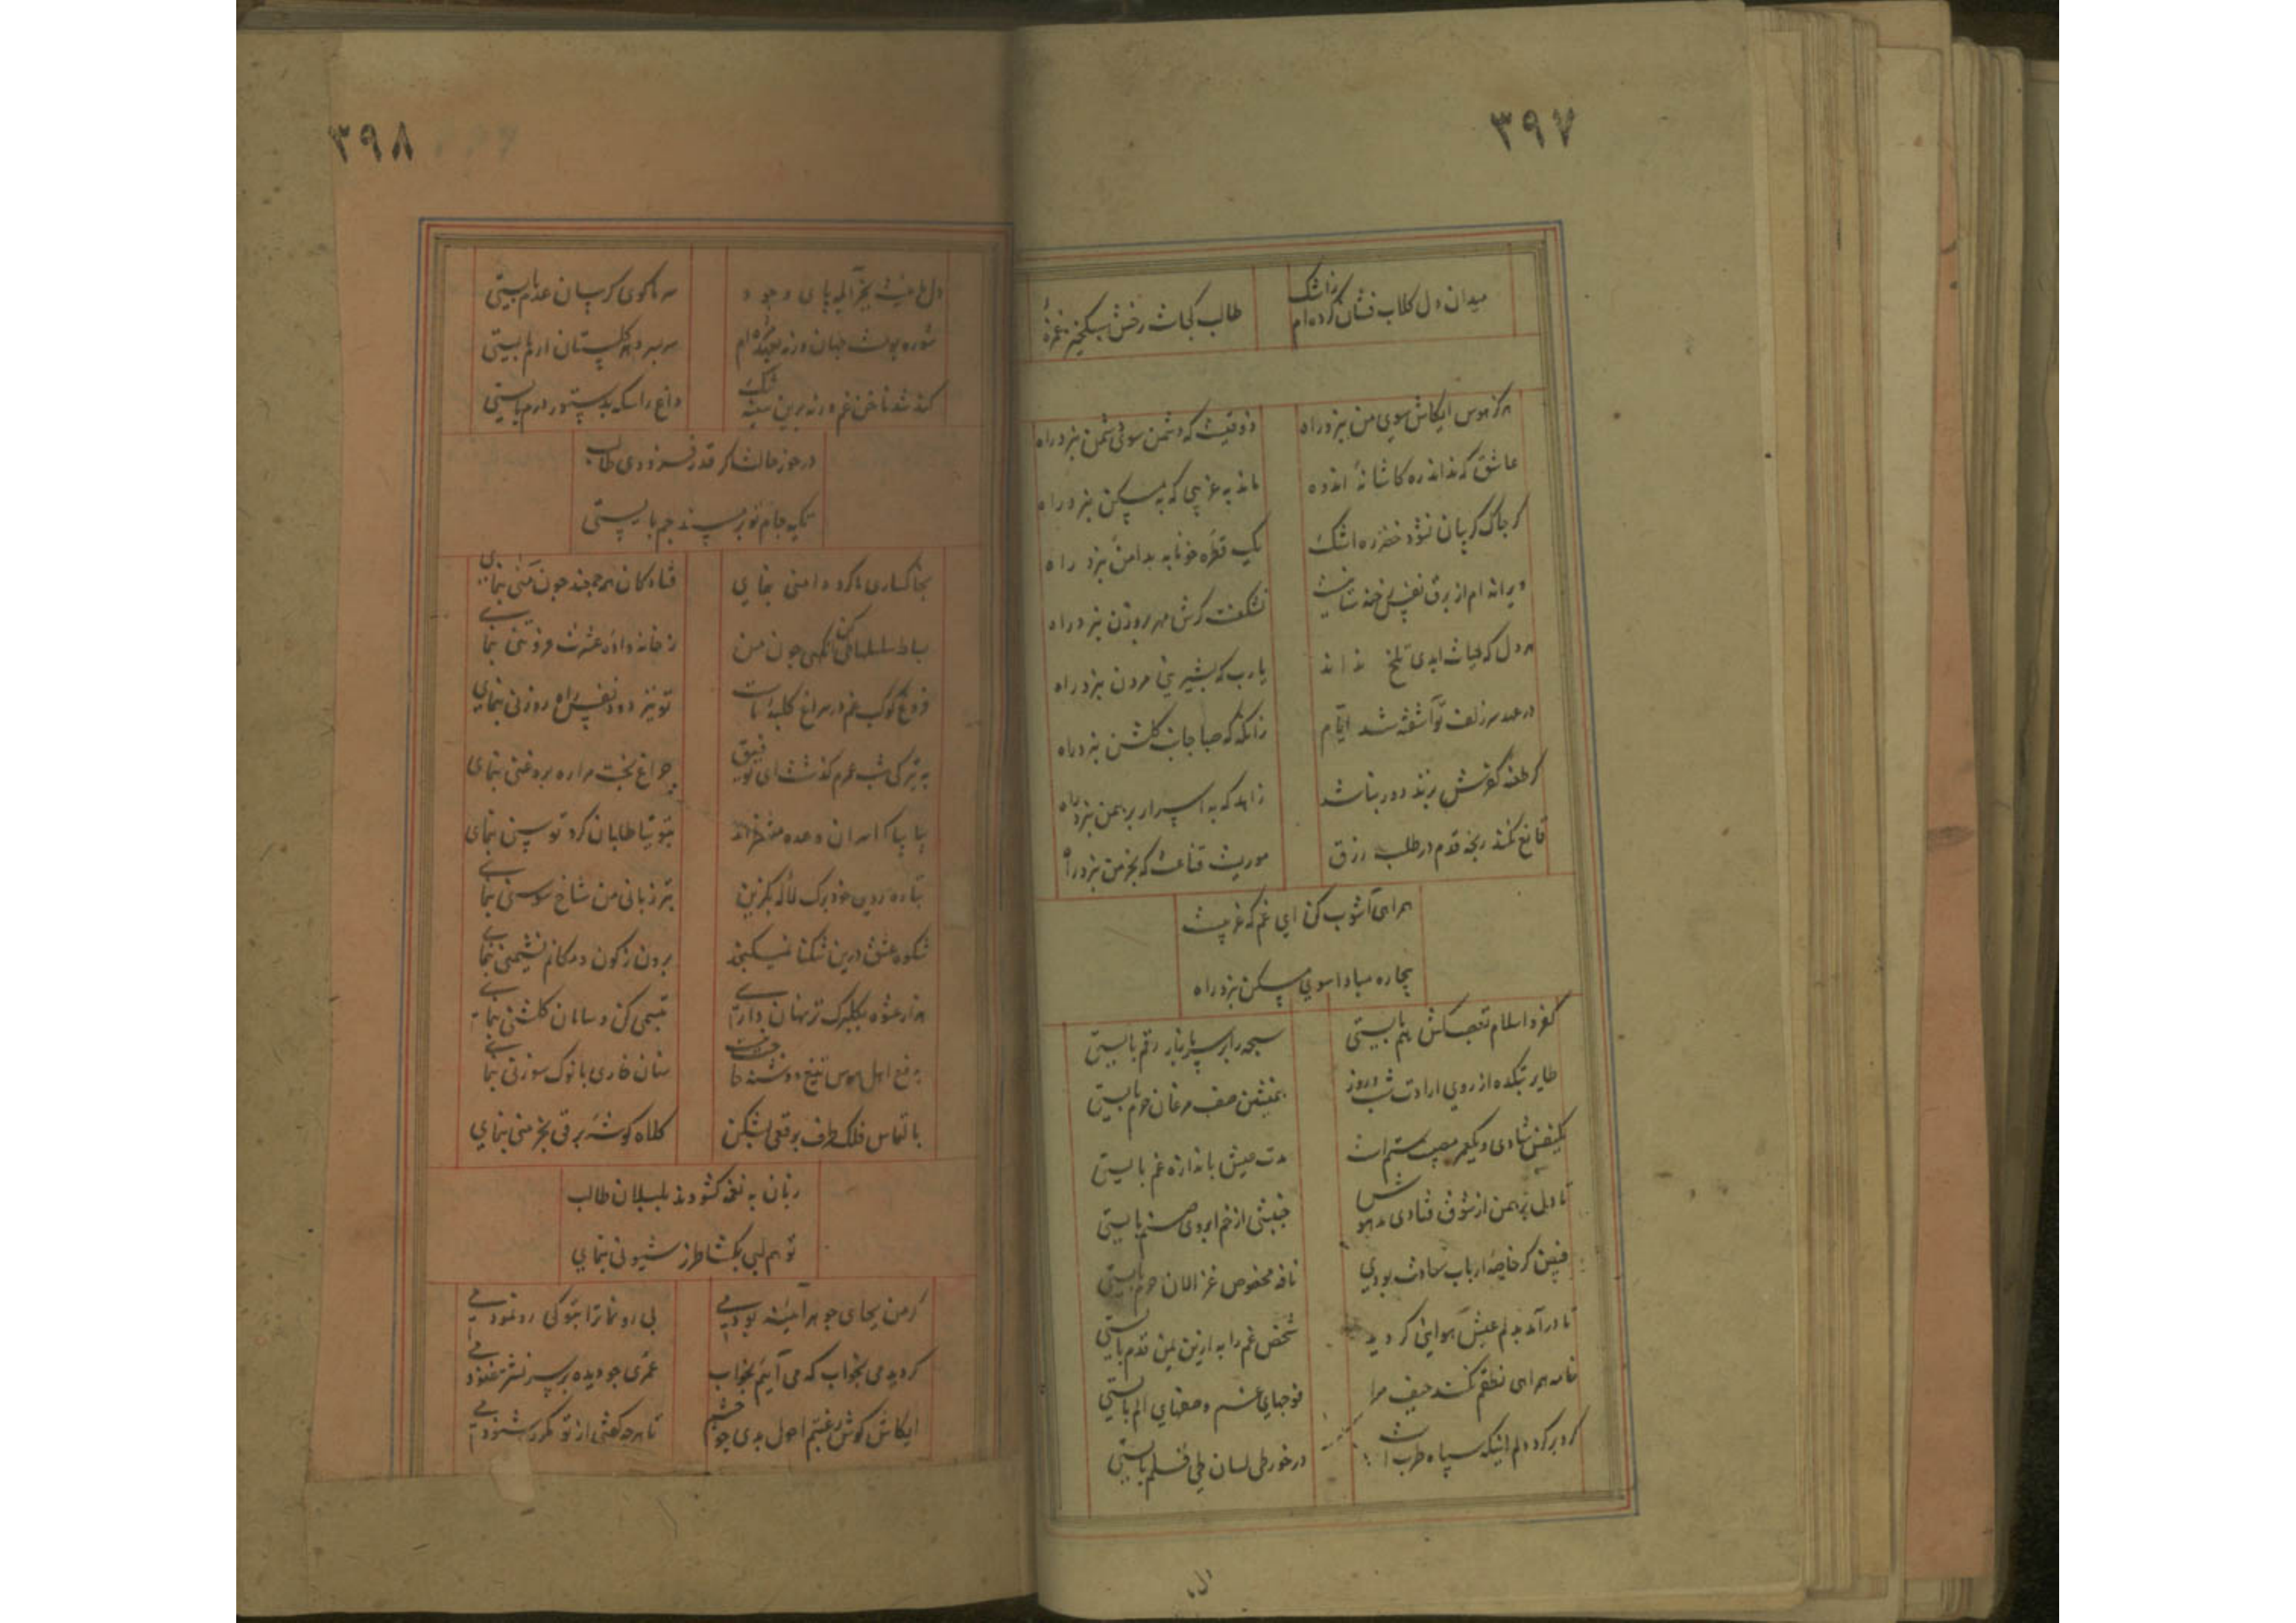 ۳۹۷
میدان دل کلاب فشان کرده‌ام ز اشک
طالب کجاست رخش سبکخیز غمزهٔ
هرگز هوس ایکاش سوی من نبرد راه
ذوقیست که دشمن سوی دشمن نبرد راه
عاشق که نداند ره کاشانهٔ اندوه
ماند به غریبی که به مسکن نبرد راه
گر چاک گریبان نشود خضر ره اشک
یک قطره خونابه بدامن نبرد راه
ویرانه ام از برق نفس
نشکفت گرش مهر بروزن نبرد راه
هر دل که حیات ابدی تلخ نداند
یارب که بشیرینی مردن نبرد راه
در عهد سر زلف تو آشفته شد ایام
زانگونه که صبا جانب گلشن نبرد راه
گر طعنه کفرش بزند دور نباشد
زاهد که به اسرار برهمن نبرد راه
قانع نکند رنجه قدم در طلب رزق
موریست قناعت که بخرمن نبرد راه
همراهی آشوب کن ای غم که غریبست
بیچاره مبادا سوی مسکن نبرد راه
کفر و اسلام بهم بایستی
سبحه را بر سر زنار رقم بایستی
طایر بتکده از روی ارادت شب و روز
همنشین صف مرغان حرم بایستی
یکنفس شادی و یکعمر مصیبت ستم است
مدت عیش باندازه غم بایستی
تا دل برهمن از شوق فتادی مدهوش
جنبشی از خم ابروی صنم بایستی
فیض گر خاصهٔ ارباب سعادت بودی
نافه مخصوص غزالان حرم بایستی
تا درآمد بدلم عیش هوایی گردید
شخص غم را به ازین یمن قدم بایستی
خامه همراهی نطقم نکند حیف مرا
فوجهای غم و صفهای الم بایستی
گرد بر گرد دلم اینکه سپاه طرب است
در خور طی لسان طی قلم بایستی
دل
۳۹۸
دل وجود
سر ما کوی گریبان عدم بایستی
شوره بومست جهان ورنه
سر بسر دهر گلستان ارم بایستی
کند شد ناخن غم ورنه برین سینه تنگ
داغ را سکه بدستور درم بایستی
در خور حالت اگر قدر فزودی طالب
تکیه جام تو بر مسند جم بایستی
بخاکساری ما گرد دامنی بنمای
فتادگان همه چون منی بنمای
بساط چون من
ز خانه‌داده عشرت فروتنی بنمای
فروغ کوکب غم در سراغ کلبهٔ ماست
تو نیز دود نفس راه روزنی بنمای
به تیرگی شب عمرم گذشت ای توفیق
چراغ بخت مرا ره بروغنی بنمای
بیا بیا که اسیران وعده منتظرند
بتوتیا طلبان گرد توسنی بنمای
بتازه رویی خود برگ لاله بگزین
بتر زبانی من شاخ سوسنی بنمای
شکوه عشق درین تنگنا نمیگنجد
برون ز کون و مکانم نشیمنی بنمای
هزار عشوه بگلبرگ تر نهان داری
تبسمی کن و سامان گلشنی بنمای
به دفع اهل هوس تیغ و دشنه حاجت نیست
سنان خاری با نوک سوزنی بنمای
بالتماس فلک طرف برقعی بشکن
کلاه گوشه برقی بخرمنی بنمای
زبان به نغمه گشودند بلبلان طالب
تو هم لبی بگشا طرز شیونی بنمای
گر من بجای جوهر آئینه بودمی
بی رونما ترا بتو کی رو نمودمی
گر دیدمی بخواب که می آئیم بخواب
عمری چو دیده بر سر نشتر غنودمی
ایکاش گوش رغبتم احول بدی چو چشم
تا هر چه گفتی از تو مکرر شنودمی